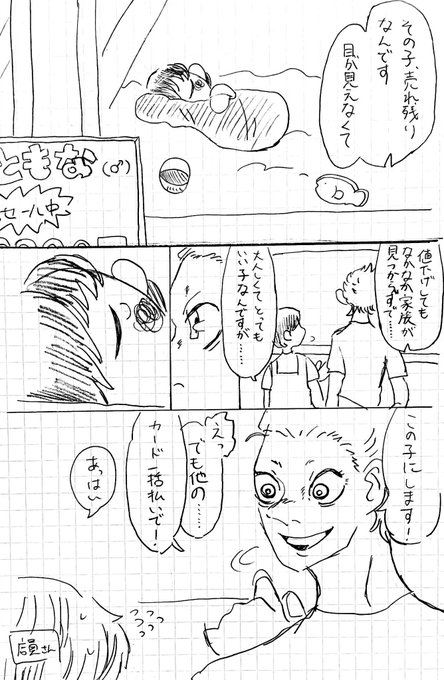 その子、売れ残り
なんです
目が見えなくて
ともな(♂)
セール中
値下げしても
なかなか家族が
見つからずで……
大人しくて、とっても
いい子なんですが……
この子にします!
えっ
でも他の……
カード一括払いで!
あっはい
店員さん